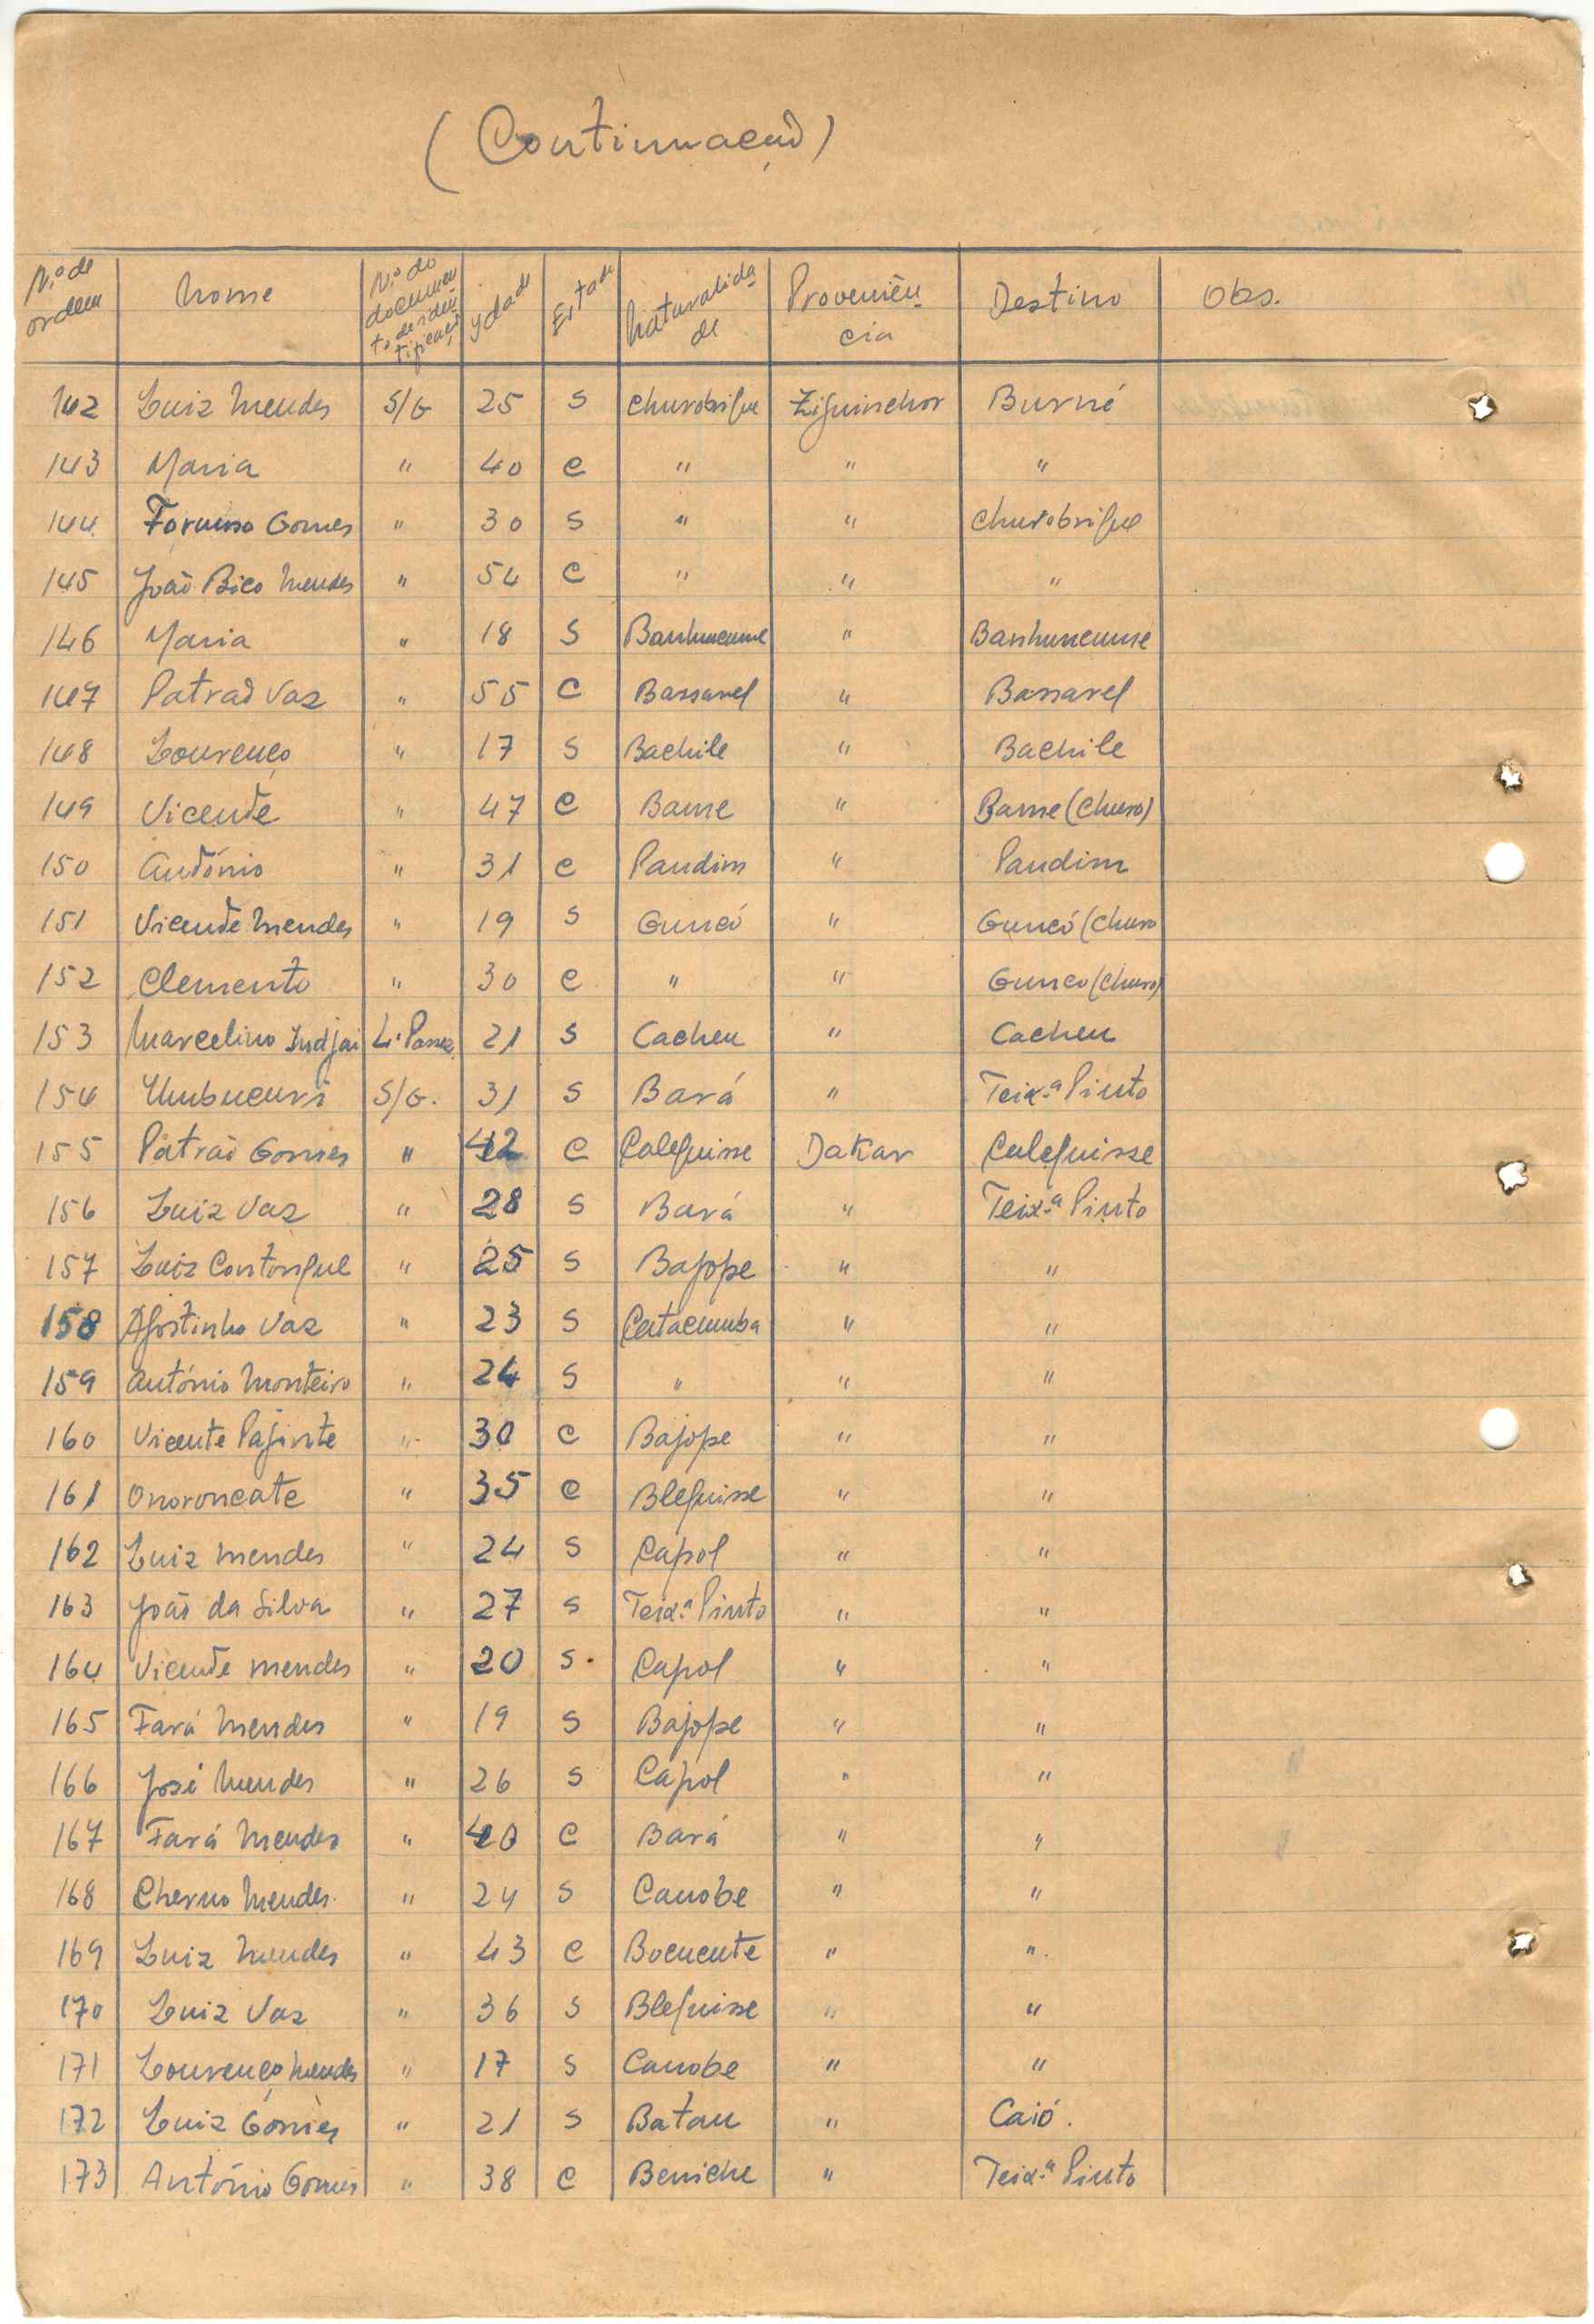 (Continuação)
N.º de ordem | Nome | N.º do documento de identificação | Ydade | Estado | Naturalidade | Proveniência | Destino | Obs.
142 Luiz Mendes S/G 25 S Churobrique Ziguinchor Burné
143 Maria " 40 C " " "
144 Gomes " 30 S " " Churobrique
145 João Bico Mendes " 54 C " " "
146 Maria " 18 S "
147 Patrão Vaz " 55 C Bassarel " Bassarel
148 Lourenço " 17 S Bachile " Bachile
149 Vicente " 47 C Bame " Bame (Churo)
150 António " 31 C Pandim " Pandim
151 Vicente Mendes " 19 S Guncó " Guncó (Churo
152 Clemento " 30 C " " Gunco (Churo)
153 Marcelino Indjai L. Passe. 21 S Cacheu " Cacheu
154 S/G. 31 S Bará " Teix.ª Pinto
155 Patrão Gomes " 42 C Calequisse Dakar Calequisse
156 Luiz Vaz " 28 S Bará " Teix.ª Pinto
157 Luiz Contongue " 25 S Bajope " "
158 Agostinho Vaz " 23 S Catacumba " "
159 António Monteiro " 24 S " " "
160 Vicente Pajinte " 30 C Bajope " "
161 Onoroncate " 35 C Blequisse " "
162 Luiz Mendes " 24 S Capol " "
163 João da Silva " 27 S Teix.ª Pinto " "
164 Vicente Mendes " 20 S. Capol " "
165 Fará Mendes " 19 S Bajope " "
166 José Mendes " 26 S Capol " "
167 Fará Mendes " 40 C Bará " "
168 Cherno Mendes. " 24 S Canobe " "
169 Luiz Mendes " 43 C Bocucute " ".
170 Luiz Vaz " 36 S Blequisse " "
171 Lourenço Mendes " 17 S Canobe " "
172 Luiz Gomes " 21 S Batau " Caió.
173 António Gomes " 38 C Beniche " Teix.ª Pinto